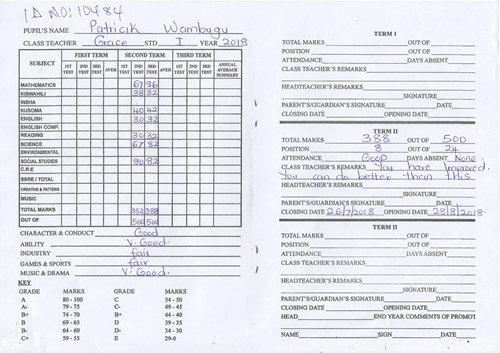 ID NO: 10484
PUPIL'S NAME Patricik Wambugu
CLASS TEACHER Grace STD I YEAR 2018
SUBJECT FIRST TERM SECOND TERM THIRD TERM ANNUAL AVERAGE SUMMARY
1ST TEST 2ND TEST 3RD TEST AVER 1ST TEST 2ND TEST 3RD TEST AVER 1ST TEST 2ND TEST 3RD TEST AVER
MATHEMATICS 67 36
KISWAHILI 38 32
INSHA
KUSOMA 40 42
ENGLISH 30 32
ENGLISH COMP.
READING 30 32
SCIENCE 67 82
ENVIRONMENTAL
SOCIAL STUDIES 90 82
CRE
SSRE / TOTAL
CREATIVE & PATTERN
MUSIC
TOTAL MARKS 352 388
OUT OF 500 500
CHARACTER & CONDUCT Good
ABILITY V. Good.
INDUSTRY fair
GAMES & SPORTS fair
MUSIC & DRAMA V. Good
KEY
GRADE MARKS GRADE MARKS
A 80 - 100 C 54 - 50
A- 79 - 75 C- 49 - 45
B+ 74 - 70 B+ 44 - 40
B 69 - 65 D 39 - 35
B- 64 - 60 D- 34 - 30
C+ 59 - 55 E 29-0
TERM 1
TOTAL MARKS OUT OF
POSITION OUT OF
ATTENDANCE DAYS ABSENT
CLASS TEACHER'S REMARKS
HEADTEACHER'S REMARKS
SIGNATURE
PARENT'S/GUARDIAN'S SIGNATURE DATE
CLOSING DATE OPENING DATE
TERM II
TOTAL MARKS 388 OUT OF 500
POSITION 8 OUT OF 24
ATTENDANCE Good DAYS ABSENT None
CLASS TEACHER'S REMARKS You have Improved.
You can do better than this
HEADTEACHER'S REMARKS
SIGNATURE
PARENT'S/GUARDIAN'S SIGNATURE DATE
CLOSING DATE 26/7/2018 OPENING DATE 28/8/2018.
TERM II
TOTAL MARKS OUT OF
POSITION OUT OF
ATTENDANCE DAYS ABSENT
CLASS TEACHER'S REMARKS
HEADTEACHER'S REMARKS
SIGNATURE
PARENT'S/GUARDIAN'S SIGNATURE DATE
CLOSING DATE OPENING DATE
HEAD END YEAR COMMENTS OF PROMOT
NAME SIGN DATE